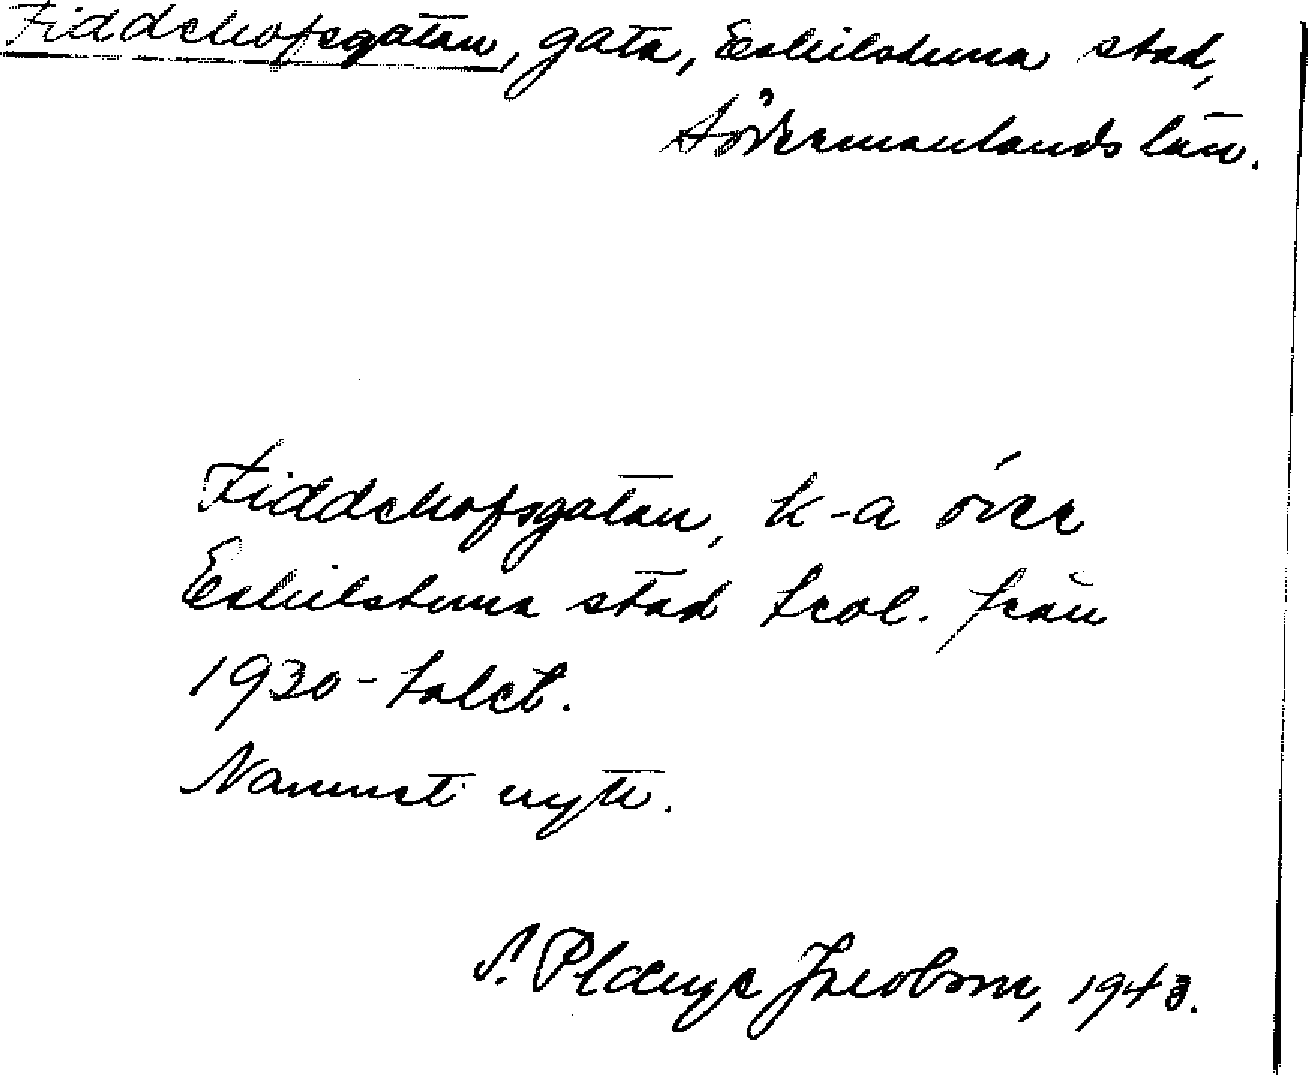 Fiddekofsgatan, gata, Eskilstuna stad,
Södermanlands län.
Fiddekofsgatan, k-a över
Eskilstuna stad trol. från
1930-talet.
Namnet nytt.
S. Plange Jacobson, 1943.